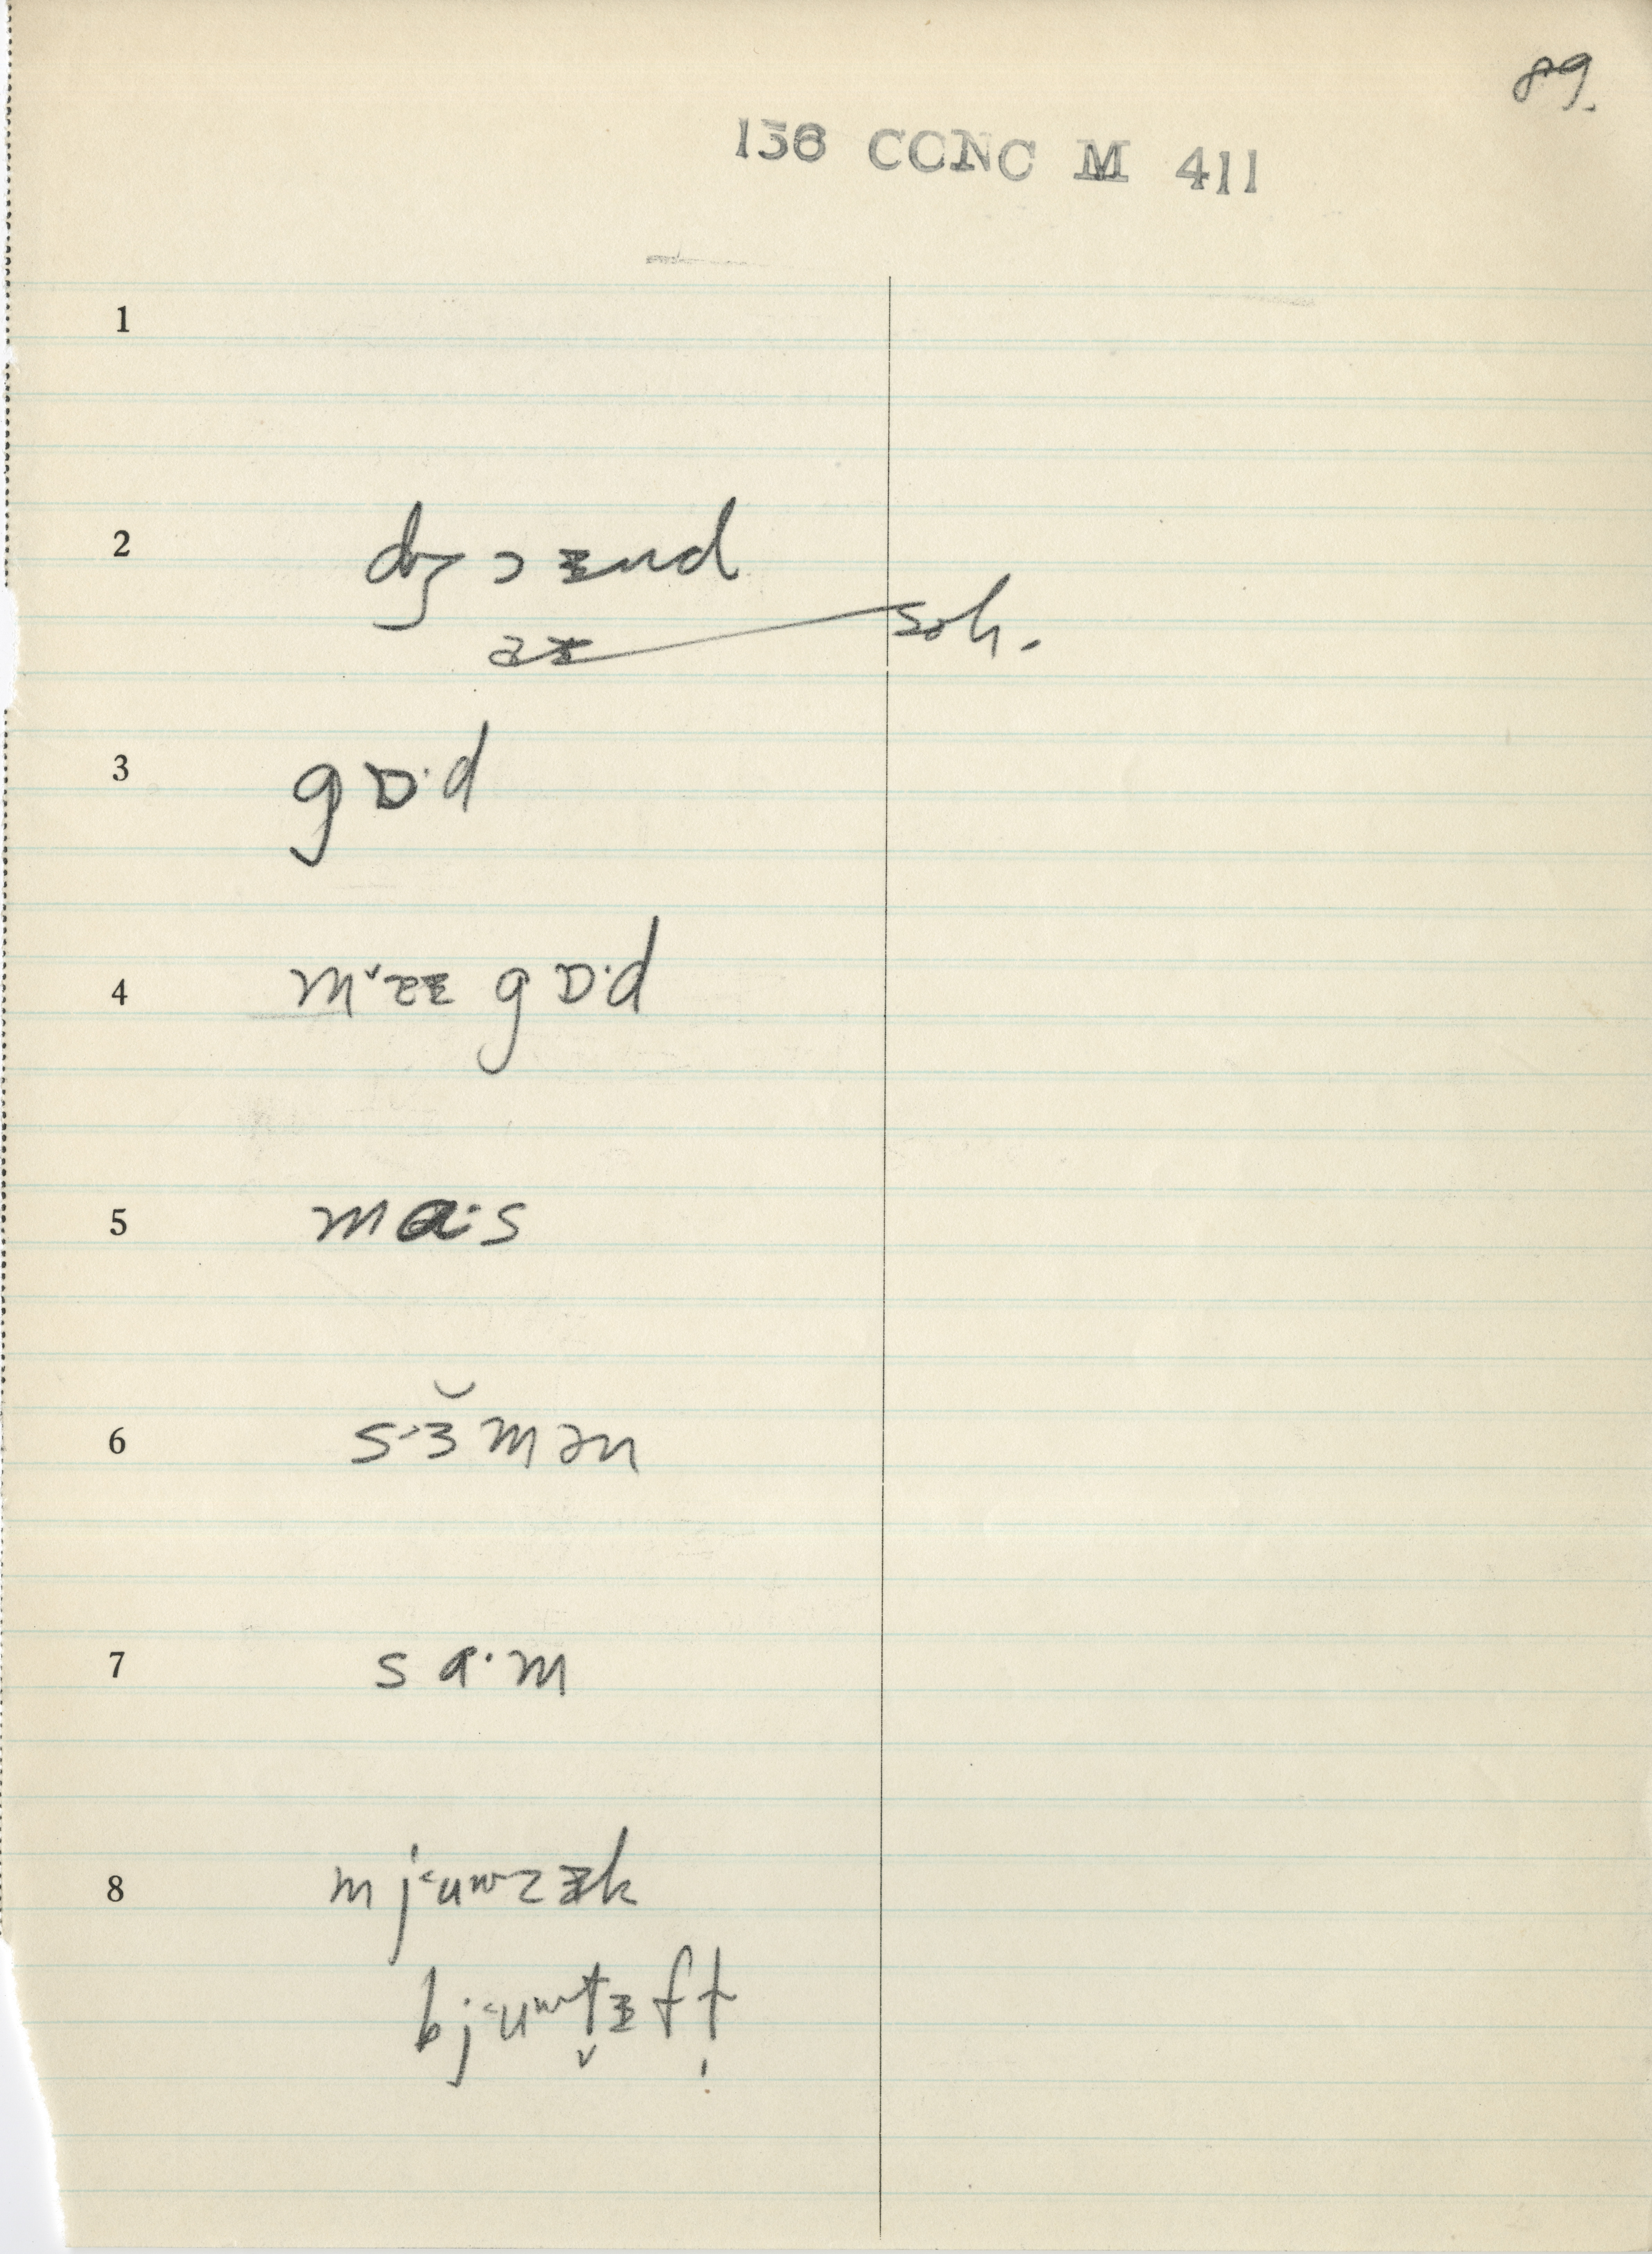 89.
156 CCNC M 411
1
2 dʒɔɪnd
əɪ sch.
3 gɒ·d
4 mˇɪɪ gɒ·d
5 mɑ·s
6 s·ɜ̆mən
7 sɑ·m
8 mj˂uʷzɪk
bj˂uʷt̬ɪft̩